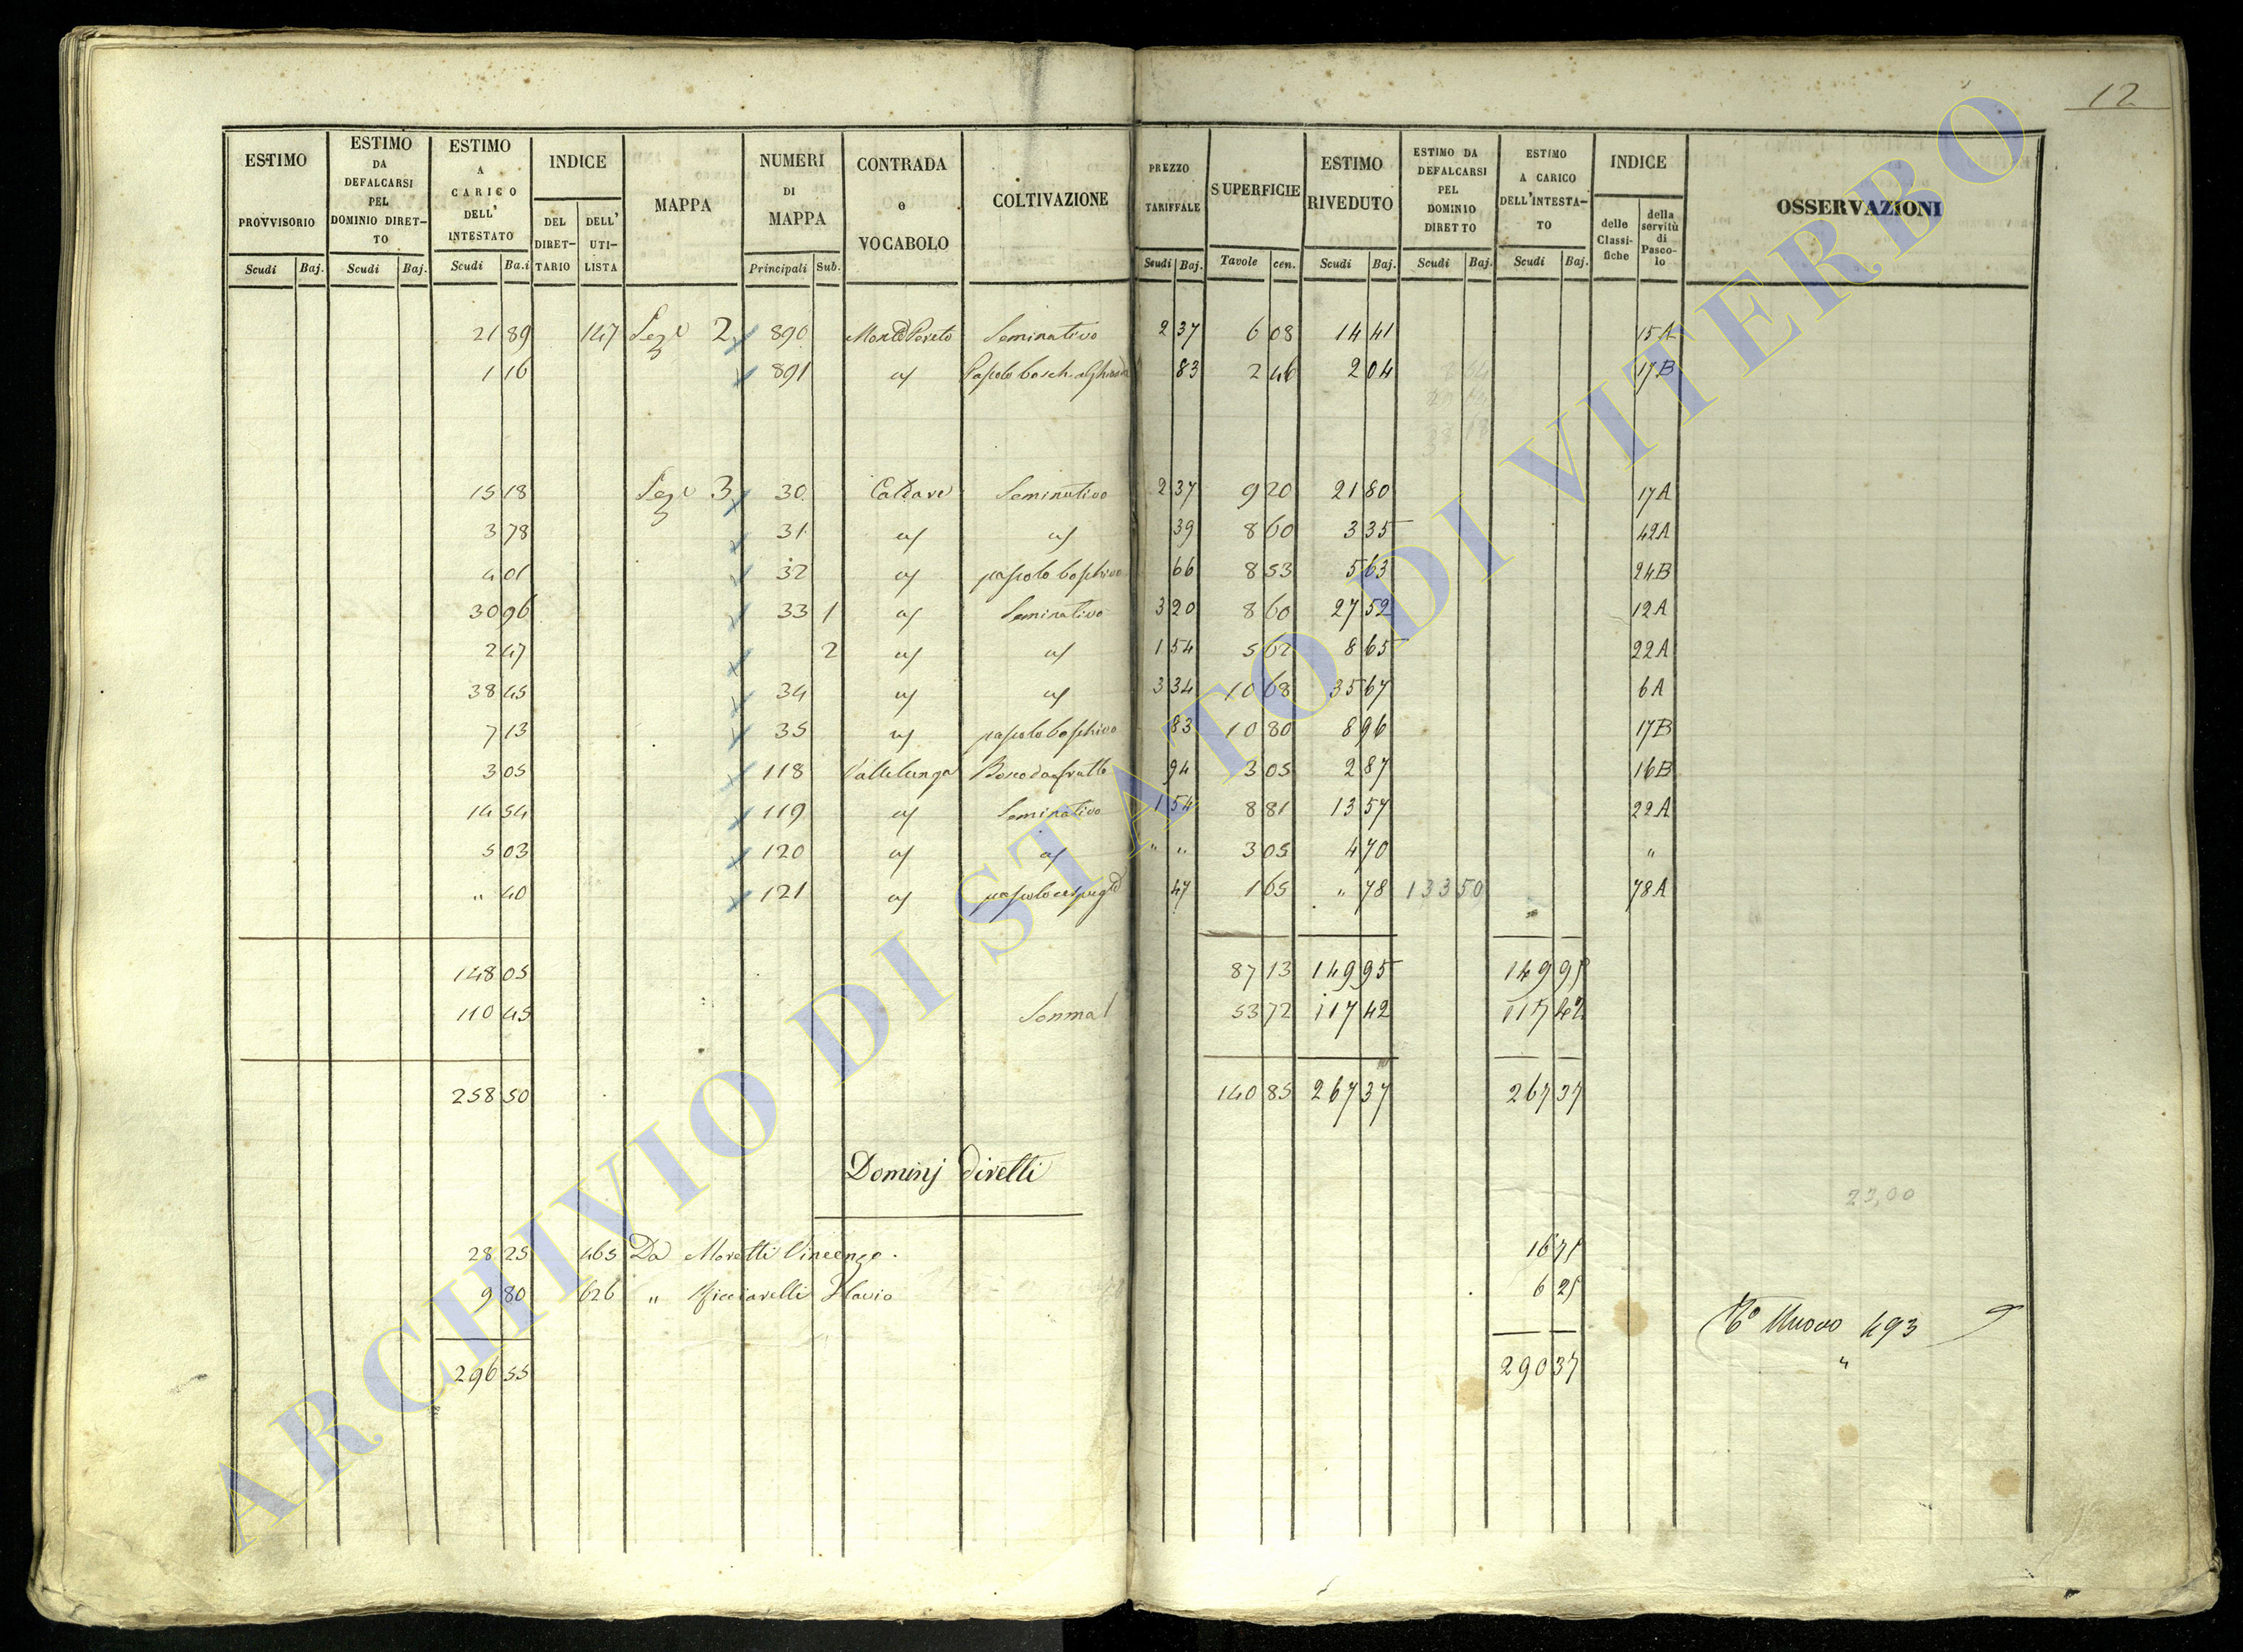 12
ESTIMO PROVVISORIO Scudi Baj. ESTIMO DA DEFALCARSI PEL DOMINIO DIRET-TO Scudi Baj. ESTIMO A CARICO DELL' INTESTATO Scudi Ba.i INDICE DEL DIRET-TARIO DELL' UTI-LISTA MAPPA NUMERI DI MAPPA Principali Sub. CONTRADA o VOCABOLO COLTIVAZIONE PREZZO TARIFFALE Scudi Baj. SUPERFICIE Tavole cen. ESTIMO RIVEDUTO Scudi Baj. ESTIMO DA DEFALCARSI PEL DOMINIO DIRETTO Scudi Baj. ESTIMO A CARICO DELL'INTESTA-TO Scudi Baj. INDICE delle Classi-fiche della servitù di Pasco-lo OSSERVAZIONI
21 89 147 Sez.e 2 890 Seminativo 2 37 6 08 14 41 15A
1 16 891 83 2 46 2 04 17B
15 18 Sez.e 3 30 Caldare Seminativo 2 37 9 20 21 80 17A
3 78 31 39 8 60 3 35 42A
4 01 32 pascolo boschivo 66 8 53 5 63 24B
30 96 33 1 Seminativo 3 20 8 60 27 52 12A
2 47 2 1 54 5 62 8 65 22A
38 45 34 3 34 10 68 35 67 6A
7 13 35 pascolo boschivo 83 10 80 8 96 17B
3 05 118 Vallelunga Bosco da frutto 94 3 05 2 87 16B
14 54 119 Seminativo 1 54 8 81 13 57 22A
5 03 120 " " 3 05 4 70 "
" 40 121 47 1 65 " 78 133 50 78A
148 05 87 13 149 95 149 95
110 45 53 72 117 42 117 42
258 50 140 85 267 37 267 37
Dominj diretti
23,00
28 25 465 Da Moretti Vincenzo 16 75
9 80 626 " Ricciarelli Flavio 6 25
Nuovo 493
"
296 55 290 37
ARCHIVIO DI STATO DI VITERBO